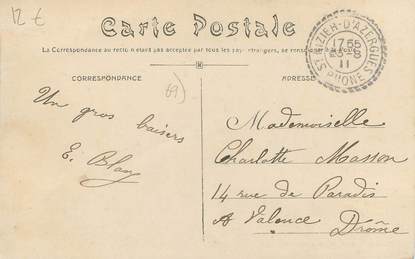 12 €
Carte Postale
La Correspondance au recto n'étant pas acceptée par tous les pays étrangers, se renseigner
CORRESPONDANCE
ADRESSE
ZIER-D'AZERGUES
17 55
11
RHONE
69)
Un gros baisers
E. Blanc
Mademoiselle
Charlotte Masson
14 rue de Paradis
A Valence
Drôme